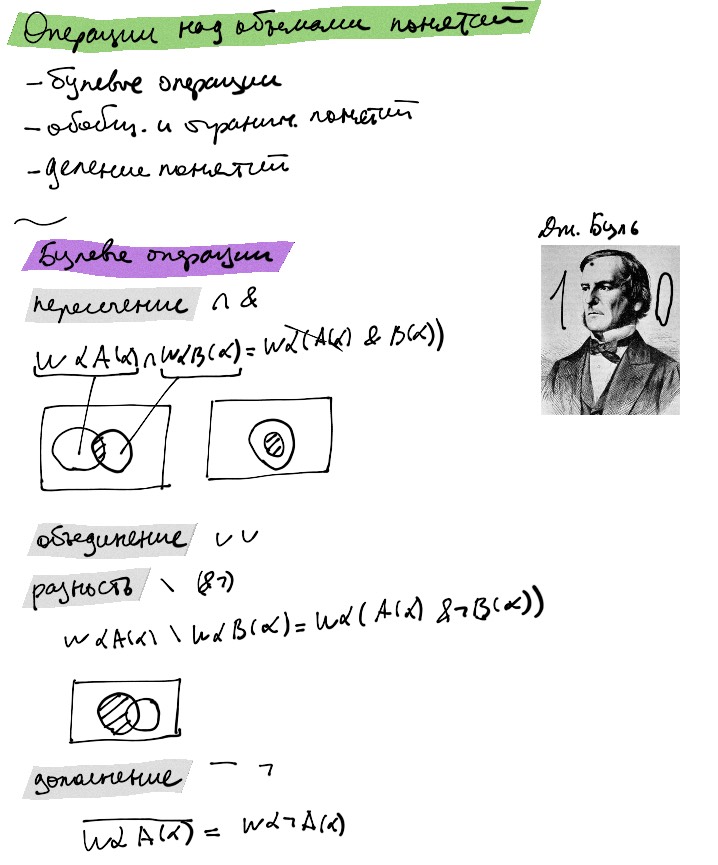 Операции над объемами понятий
- булевые операции
- обобщ. и огранич. понятий
- деление понятий
Дж. Буль
1 0
Булевые операции
пересечение ∩ &
WαA(α) ∩ WαB(α) = Wα(A(α) & B(α))
объединение ∪ ∨
разность \ (&¬)
WαA(α) \ WαB(α) = Wα(A(α) & ¬B(α))
дополнение ‾ ¬
W̅α̅A̅(̅α̅)̅ = Wα¬A(α)